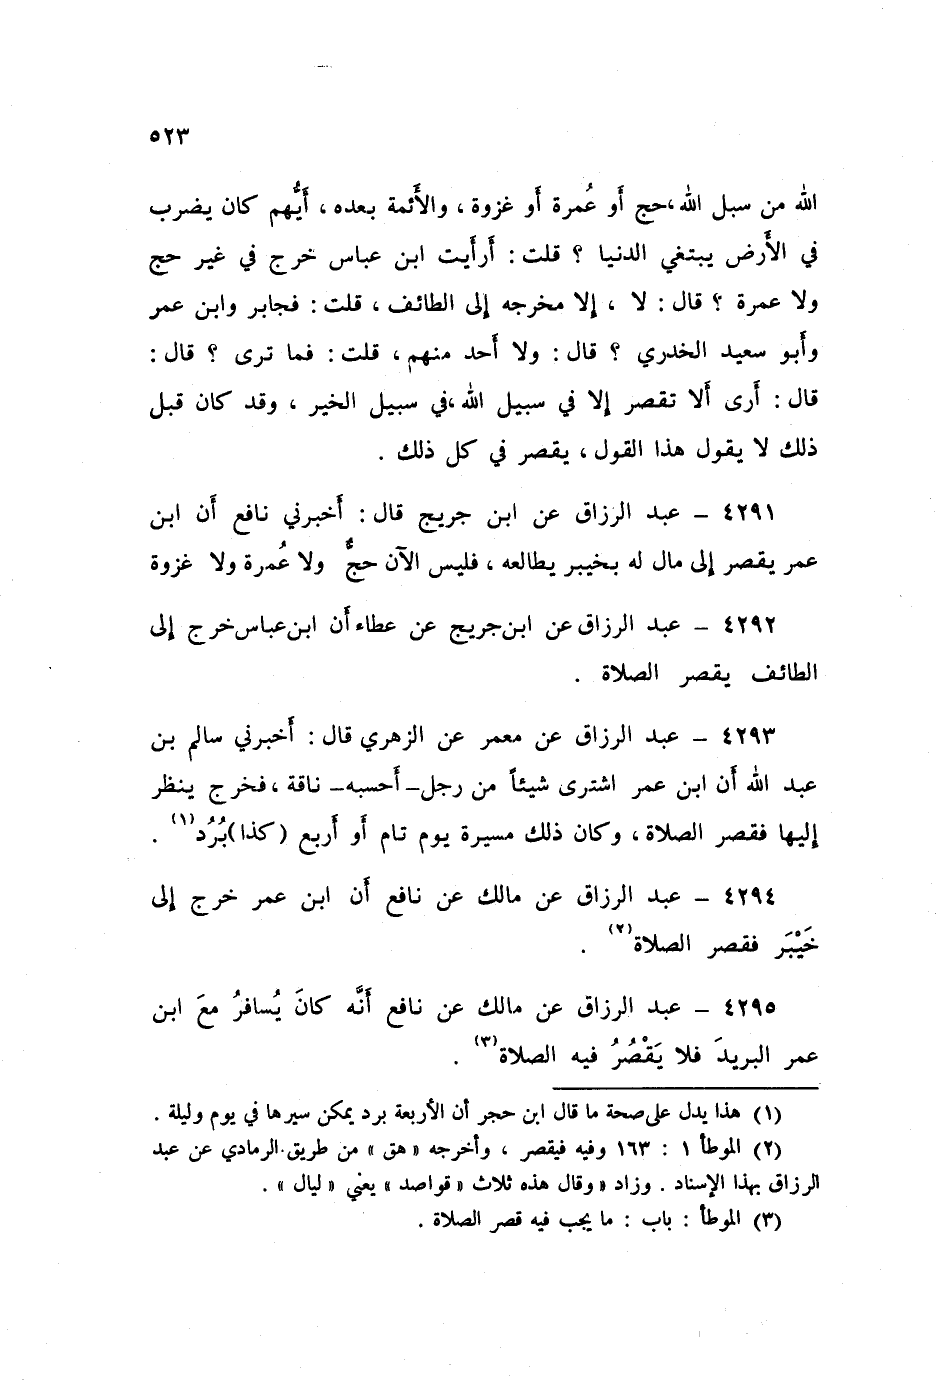 ٥٢٣
الله من سبل الله، حج أو عُمرة أو غزوة ، والأئمة بعده ، أيُّهم كان يضرب
في الأرض يبتغي الدنيا ؟ قلت : أرأيت ابن عباس خرج في غير حج
ولا عمرة ؟ قال : لا ، إلا مخرجه إلى الطائف ، قلت : فجابر وابن عمر
وأبو سعيد الخدري ؟ قال : ولا أحد منهم ، قلت : فما ترى ؟ قال :
قال : أرى ألا تقصر إلا في سبيل الله ،في سبيل الخير ، وقد كان قبل
ذلك لا يقول هذا القول ، يقصر في كل ذلك .
٤٢٩١ – عبد الرزاق عن ابن جريج قال : أخبرني نافع أن ابن
عمر يقصر إلى مال له بخيبر يطالعه ، فليس الآن حجٌّ ولا عُمرة ولا غزوة
٤٢٩٢ – عبد الرزاق عن ابن جريج عن عطاء أن ابن عباس خرج إلى
الطائف يقصر الصلاة .
٤٢٩٣ – عبد الرزاق عن معمر عن الزهري قال : أخبرني سالم بن
عبد الله أن ابن عمر اشترى شيئاً من رجل – أحسبه – ناقة ، فخرج ينظر
إليها فقصر الصلاة ، وكان ذلك مسيرة يوم تام أو أربع (كذا) بُرُد(١) .
٤٢٩٤ – عبد الرزاق عن مالك عن نافع أن ابن عمر خرج إلى
خَيْبَر فقصر الصلاة(٢) .
٤٢٩٥ – عبد الرزاق عن مالك عن نافع أنَّه كانَ يُسافرُ معَ ابن
عمر البريدَ فلا يَقْصُرُ فيه الصلاة(٣) .
(١) هذا يدل على صحة ما قال ابن حجر أن الأربعة برد يمكن سيرها في يوم وليلة .
(٢) الموطأ ١ : ١٦٣ وفيه فيقصر ، وأخرجه « هق » من طريق الرمادي عن عبد
الرزاق بهذا الإسناد . وزاد « وقال هذه ثلاث « قواصد » يعني « ليال » .
(٣) الموطأ : باب : ما يجب فيه قصر الصلاة .